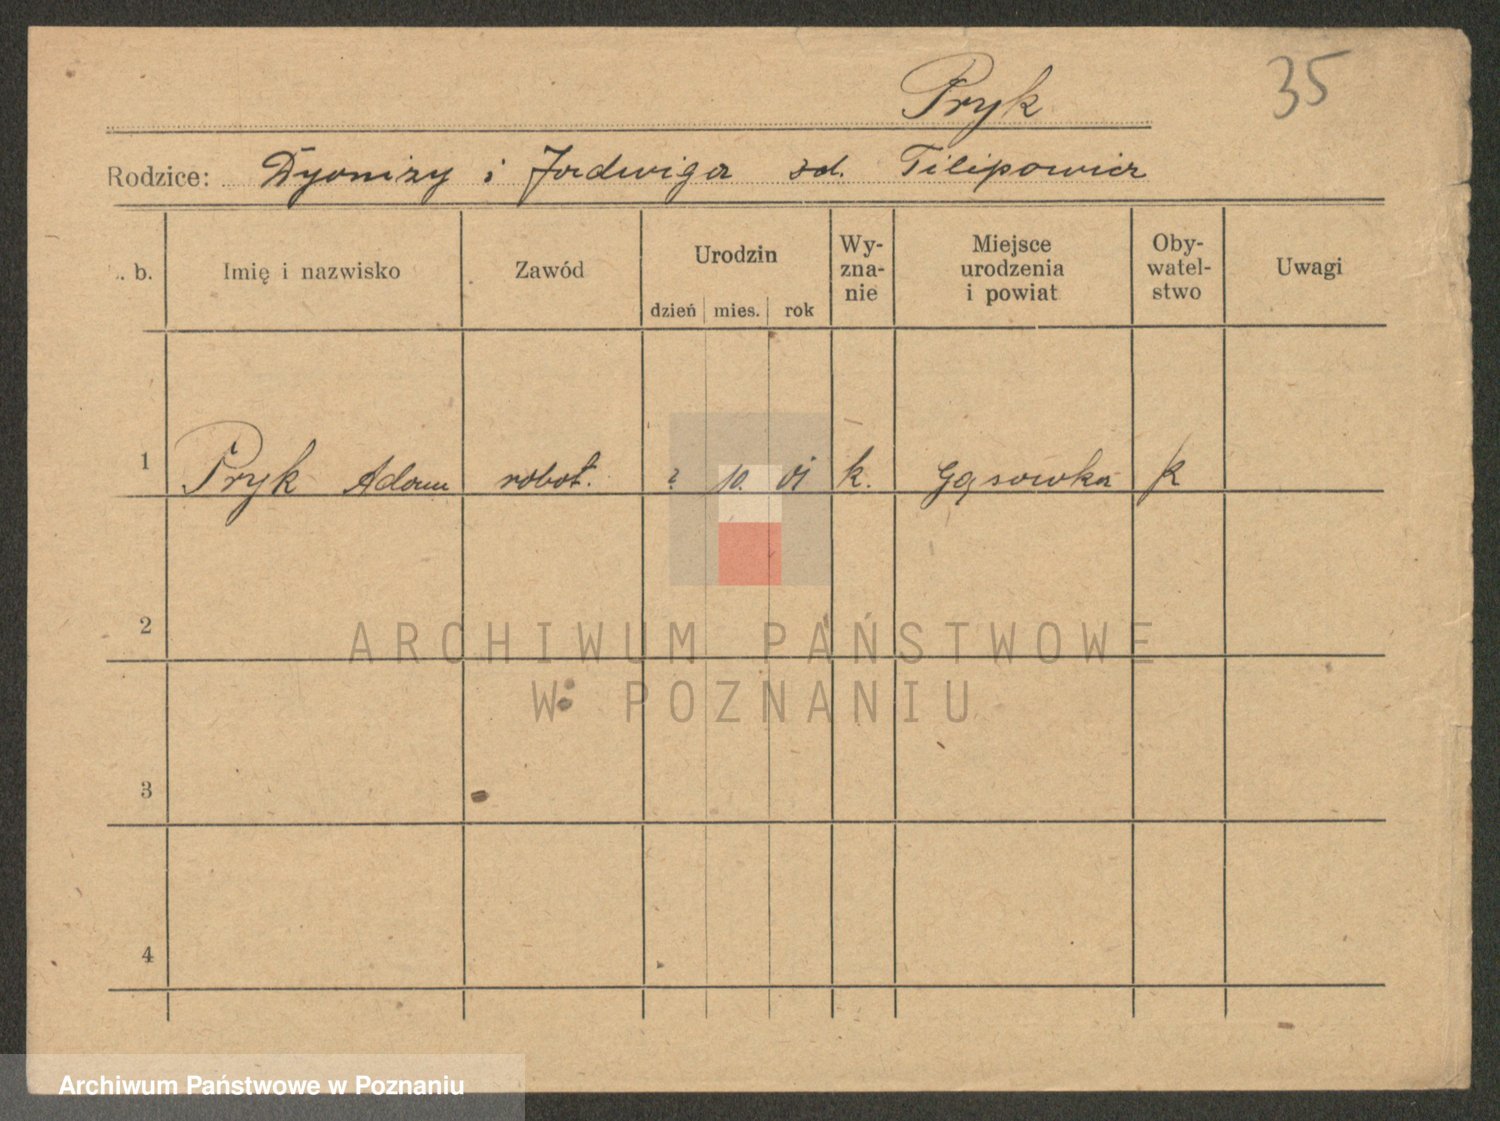 Pryk
35
Rodzice: Dyonizy i Jadwiga zd. Filipowicz
. b. Imię i nazwisko Zawód Urodzin dzień mies. rok Wy-zna-nie Miejsce urodzenia i powiat Oby-watel-stwo Uwagi
1 Pryk Adam robot. 2 10. 01 k. Gąsowka
2
ARCHIWUM PAŃSTWOWE
W POZNANIU
3
4
Archiwum Państwowe w Poznaniu